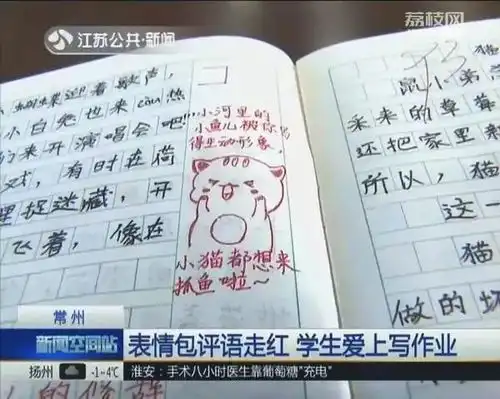 江苏公共·新闻
荔枝网
着歌声，
小白兔也来cou热
们来开演唱会吧!"
戏，有时在荷
里捉迷藏，开
飞着，像在
小河里的
小鱼儿被你写
得生动形象，
小猫都想来
抓鱼啦～
猫
鼠小弟
采来的草莓
还把家里
所以，猫
这一
猫
做的
常州
新闻空间站
表情包评语走红 学生爱上写作业
扬州 -1~4℃
淮安：手术八小时医生靠葡萄糖"充电"